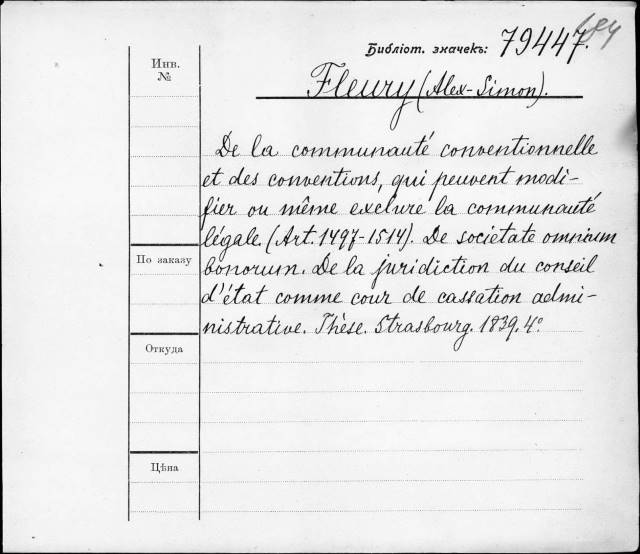 184
Библіот. значекъ: 79447.
Инв.
№
Fleury (Alex-Simon).
De la communauté conventionnelle
et des conventions, qui peuvent modi-
fier ou même exclure la communauté
légale. (Art. 1497-1514). De societate omnium
По заказу
bonorum. De la juridiction du conseil
d'état comme cour de cassation admi-
nistrative. Thèse. Strasbourg. 1839. 4°
Откуда
Цѣна